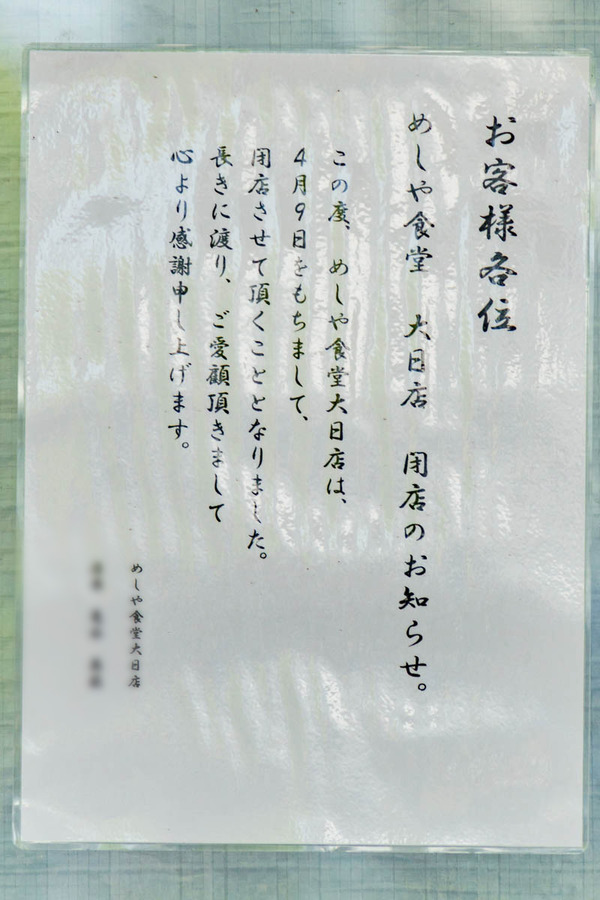 お客様各位
めしや食堂　大日店　閉店のお知らせ。
この度、めしや食堂大日店は、
4月9日をもちまして、
閉店させて頂くこととなりました。
長きに渡り、ご愛顧頂きまして
心より感謝申し上げます。
めしや食堂大日店